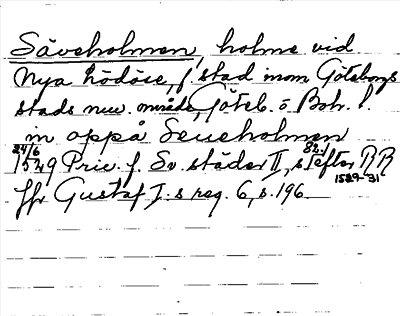 Säveholmen, holme vid
Nya Lödöse, f. stad inom Göteborgs
stads nuv. område, Göteb. o. Boh. l.
m oppå Seueholmen
24/6 1529 Priv. f. Sv. städer II, s. 82, efter RR 1529-31
Jfr Gustaf I:s reg. 6, s. 196